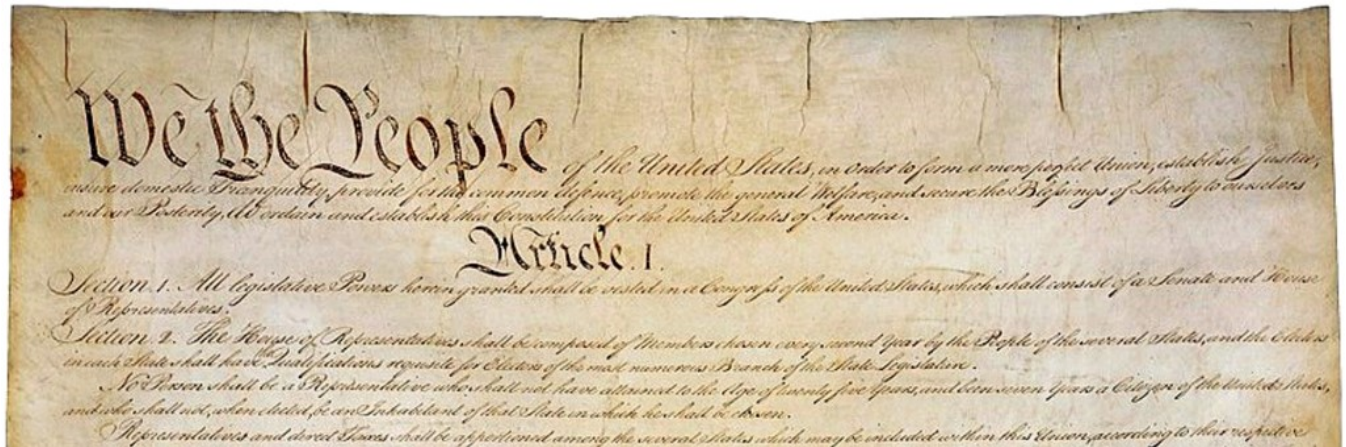 We the People of the United States, in Order to form a more perfect Union, establish Justice,
insure domestic Tranquility, provide for the common defence, promote the general Welfare, and secure the Blessings of Liberty to ourselves
and our Posterity, do ordain and establish this Constitution for the United States of America.
Article. I.
Section. 1. All legislative Powers herein granted shall be vested in a Congress of the United States, which shall consist of a Senate and House
of Representatives.
Section. 2. The House of Representatives shall be composed of Members chosen every second Year by the People of the several States, and the Electors
in each State shall have the Qualifications requisite for Electors of the most numerous Branch of the State Legislature.
No Person shall be a Representative who shall not have attained to the Age of twenty five Years, and been seven Years a Citizen of the United States,
and who shall not, when elected, be an Inhabitant of that State in which he shall be chosen.
Representatives and direct Taxes shall be apportioned among the several States which may be included within this Union, according to their respective